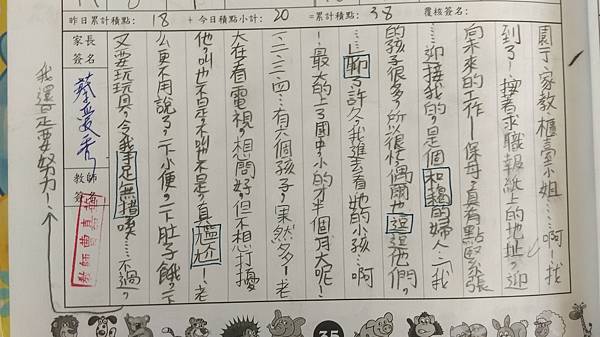 昨日累計積點： 18 +今日積點小計： 20 =累計積點： 38 覆核簽名：
園丁、家教、櫃臺小姐……啊！找
到了！按著求職報紙上的地址，迎
向未來的工作—保母，真有點緊張
…迎接我的，是個和藹的婦人…「我
的孩子很多，所以很忙，偶爾也逗逗他們。
」…聊了許久，我進去看她的小孩…啊
！最大的上了國中，小的才半個月大呢！
一、二、三、四…有六個孩子，果然多！老
大在看電視，想問好，但不想打擾
他，叫也不是，不叫也不是，真尷尬！老
么更不用說了，一下小便，一下肚子餓，一下
又要玩玩具，令我手足無措唉…不過，
我還是要努力！
家長
簽名
蔡愛秀
教師
簽名
教師曹真
35